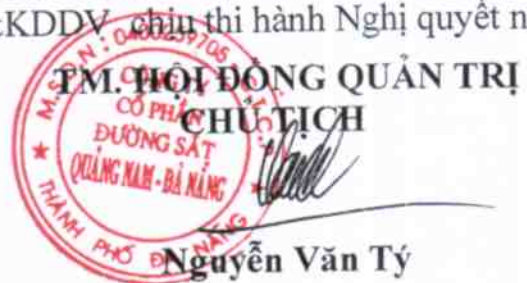 KDDV, chịu thi hành Nghị quyết n
TM. HỘI ĐỒNG QUẢN TRỊ
CHỦ TỊCH
M.S.D.N:
C.T.C.P
CÔNG TY
CỔ PHẦN
ĐƯỜNG SẮT
QUẢNG NAM - ĐÀ NẴNG
THÀNH PHỐ ĐÀ NẴNG
Nguyễn Văn Tý